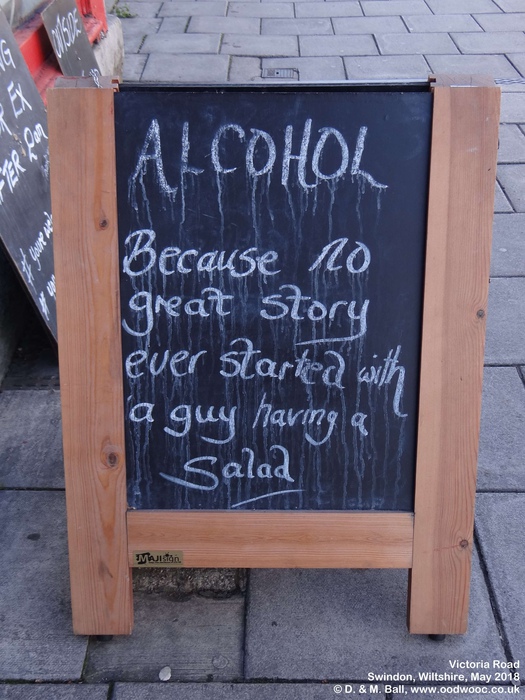 OUTSIDE
NG
R EX
AFTER
ALCOHOL
Because no
great story
ever started with
a guy having a
Salad
MAJIsign
Victoria Road
Swindon, Wiltshire, May 2018
© D. & M. Ball, www.oodwooc.co.uk